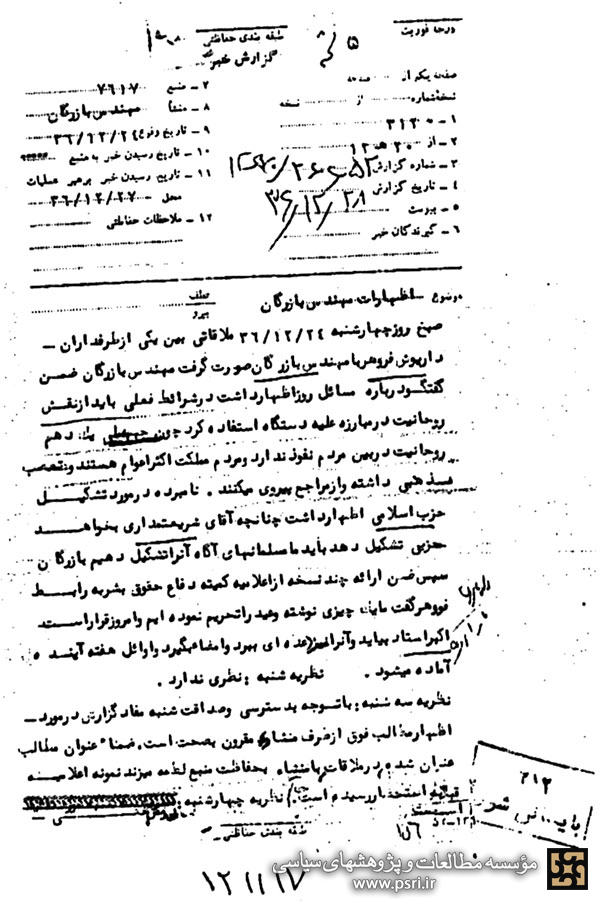 درجه فوریت
طبقه بندی حفاظتی
گزارش خبر
صفحه یکم از صفحه
نسخه شماره از نسخه
۱ - ۳۱۲۰
۲ - از ۲۰ هـ ۱۲
۳ - شماره گزارش
۴ - تاریخ گزارش ۳۶/۱۲/۲۸
۵ - پیوست
۶ - گیرندگان خبر
۷ - منبع ۷۶۱۷
۸ - منشأ مهندس بازرگان
۹ - تاریخ وقوع ۳۶/۱۲/۲۴
۱۰ - تاریخ رسیدن خبر به منبع *****
۱۱ - تاریخ رسیدن خبر برهبر عملیات
محل ۳۶/۱۲/۲۷
۱۲ - ملاحظات حفاظتی
موضوع - اظهارات مهندس بازرگان
عطف
پیرو
صبح روز چهارشنبه ۳۶/۱۲/۲۴ ملاقاتی بین یکی از طرفداران -
داریوش فروهر با مهندس بازرگان صورت گرفت مهندس بازرگان ضمن
گفتگو درباره مسائل روز اظهار داشت در شرائط فعلی باید از نقش
روحانیت در مبارزه علیه دستگاه استفاده کرد چون
روحانیت در بین مردم نفوذ ندارد و مردم مملکت اکثرا عوام هستند و تعصب
مذهبی داشته و از مراجع پیروی میکنند . نامبرده در مورد تشکیل
حزب اسلامی اظهار داشت چنانچه آقای شریعتمداری بخواهد
حزبی تشکیل دهد باید ما مسلمانهای آگاه آنرا تشکیل دهیم بازرگان
سپس ضمن ارائه چند نسخه از اعلامیه کمیته دفاع حقوق بشر به رابط
فروهر گفت ما چیزی نوشته و عید را تحریم نموده ایم و امروز قرار است
اکبر استاد بیاید و آنرا عده ای ببرد و امضا بگیرد و اوائل هفته آینده
آماده میشود . نظریه شنبه : نظری ندارد .
نظریه سه شنبه : با توجه بدسترسی و صداقت شنبه مفاد گزارش در مورد -
اظهار مطالب فوق از طرف منشاء مقرون بصحت است. ضمنا عنوان مطالب
عنوان شده در ملاقات با منشاء بحفاظت منبع لطمه میزند نمونه اعلامیه
قبلا استحضار رسیده است. نظریه چهارشنبه :
طبقه بندی حفاظتی
۳۱۲
۱۲۱۱۱۷
مؤسسه مطالعات و پژوهشهای سیاسی
www.psri.ir